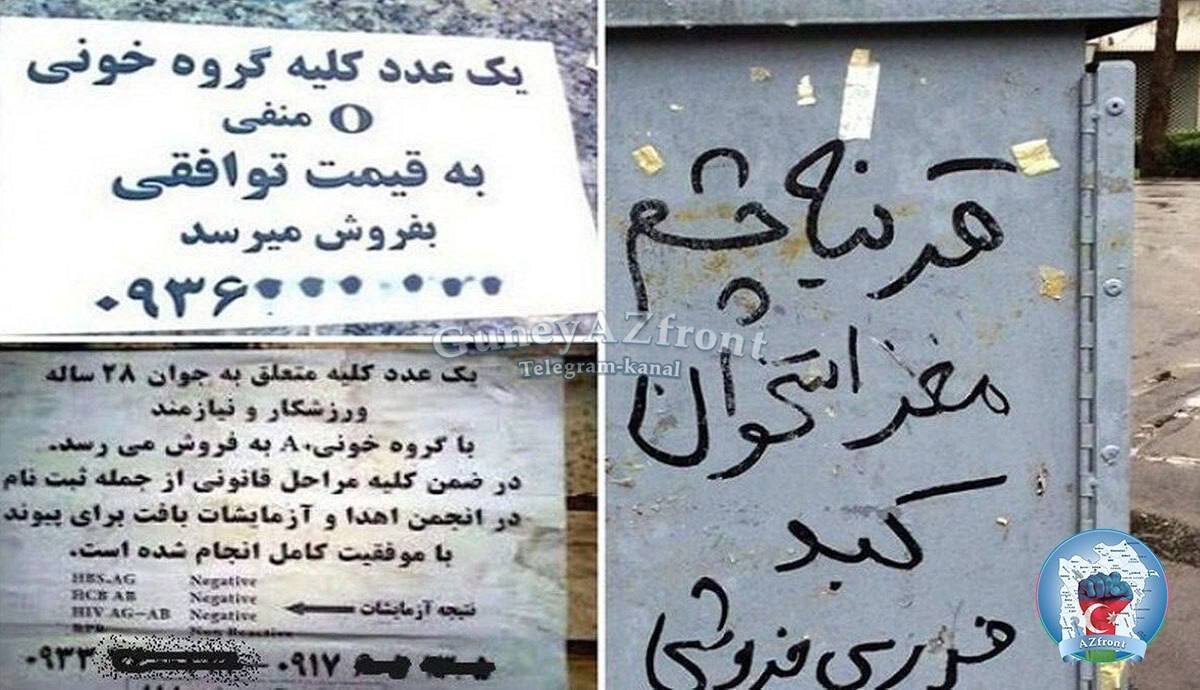 یک عدد کلیه گروه خونی
O منفی
به قیمت توافقی
بفروش میرسد
۰۹۳۶
یک عدد کلیه متعلق به جوان ۲۸ ساله
ورزشکار و نیازمند
با گروه خونی A+ به فروش می رسد.
در ضمن کلیه مراحل قانونی از جمله ثبت نام
در انجمن اهدا و آزمایشات بافت برای پیوند
با موفقیت کامل انجام شده است.
HBS.AG Negative
HCB AB Negative
HIV AG-AB Negative
نتیجه آزمایشات
۰۹۳۳ - ۰۹۱۷
قرنیه چشم
مغز استخوان
کبد
فروشی
GuneyAZfront
Telegram-kanal
AZfront